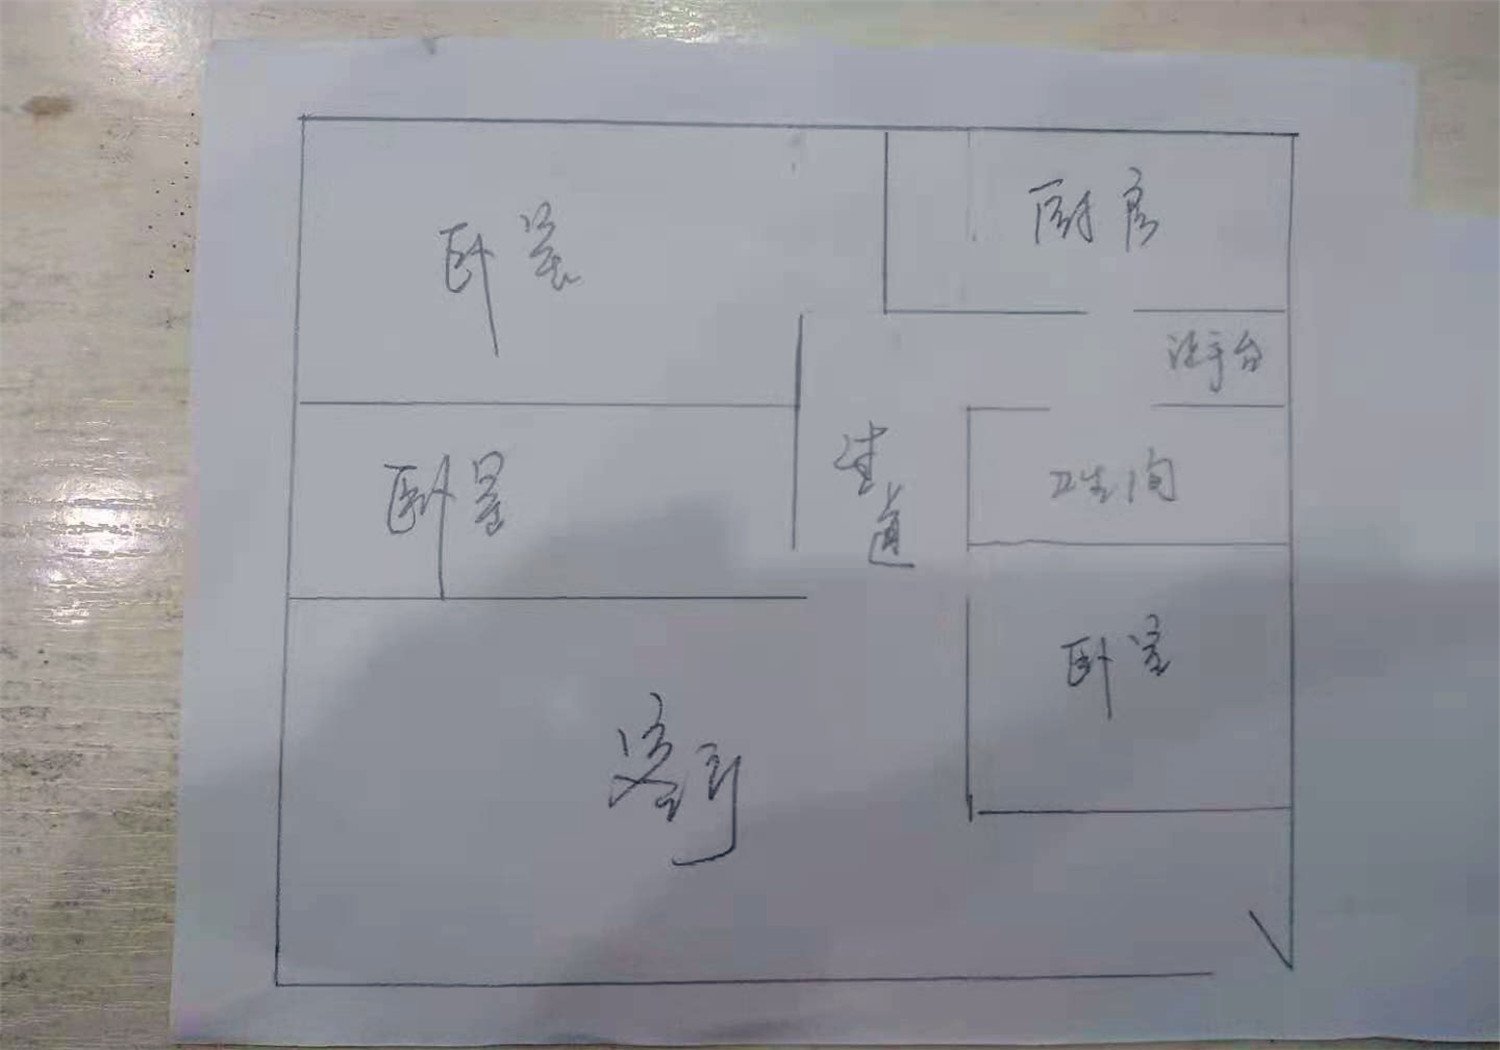 卧室
厨房
洗手台
走
道
卧室
卫生间
卧室
客厅